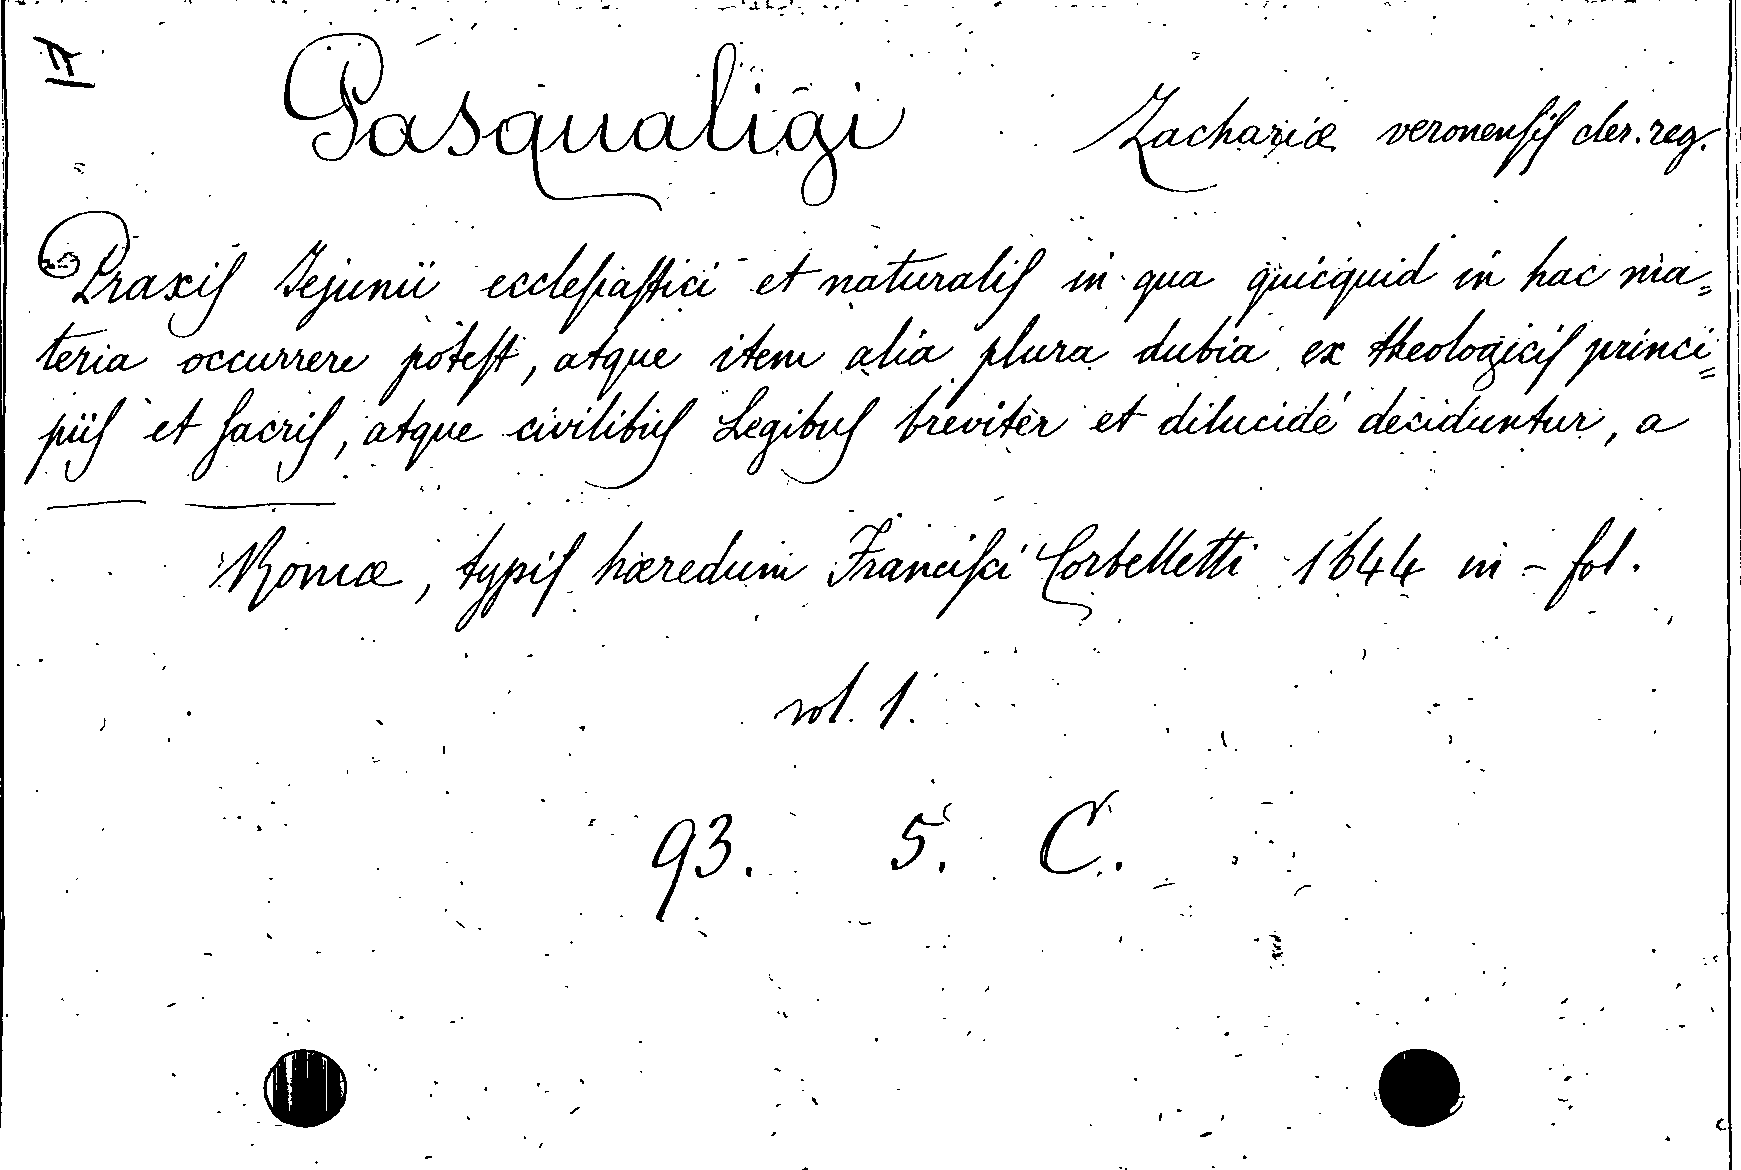 Pasqualigi Zachariæ veronensis cler. reg.
Praxis Jejunii ecclesiastici et naturalis in qua quicquid in hac ma=
teria occurrere potest, atque item alia plura dubia ex theologicis princi=
piis et sacris, atque civilibus Legibus breviter et dilucidé deciduntur, a
— —
Romæ, typis hæredum Francisci Corbelletti 1644 in - fol.
vol. 1.
93. 5. C.